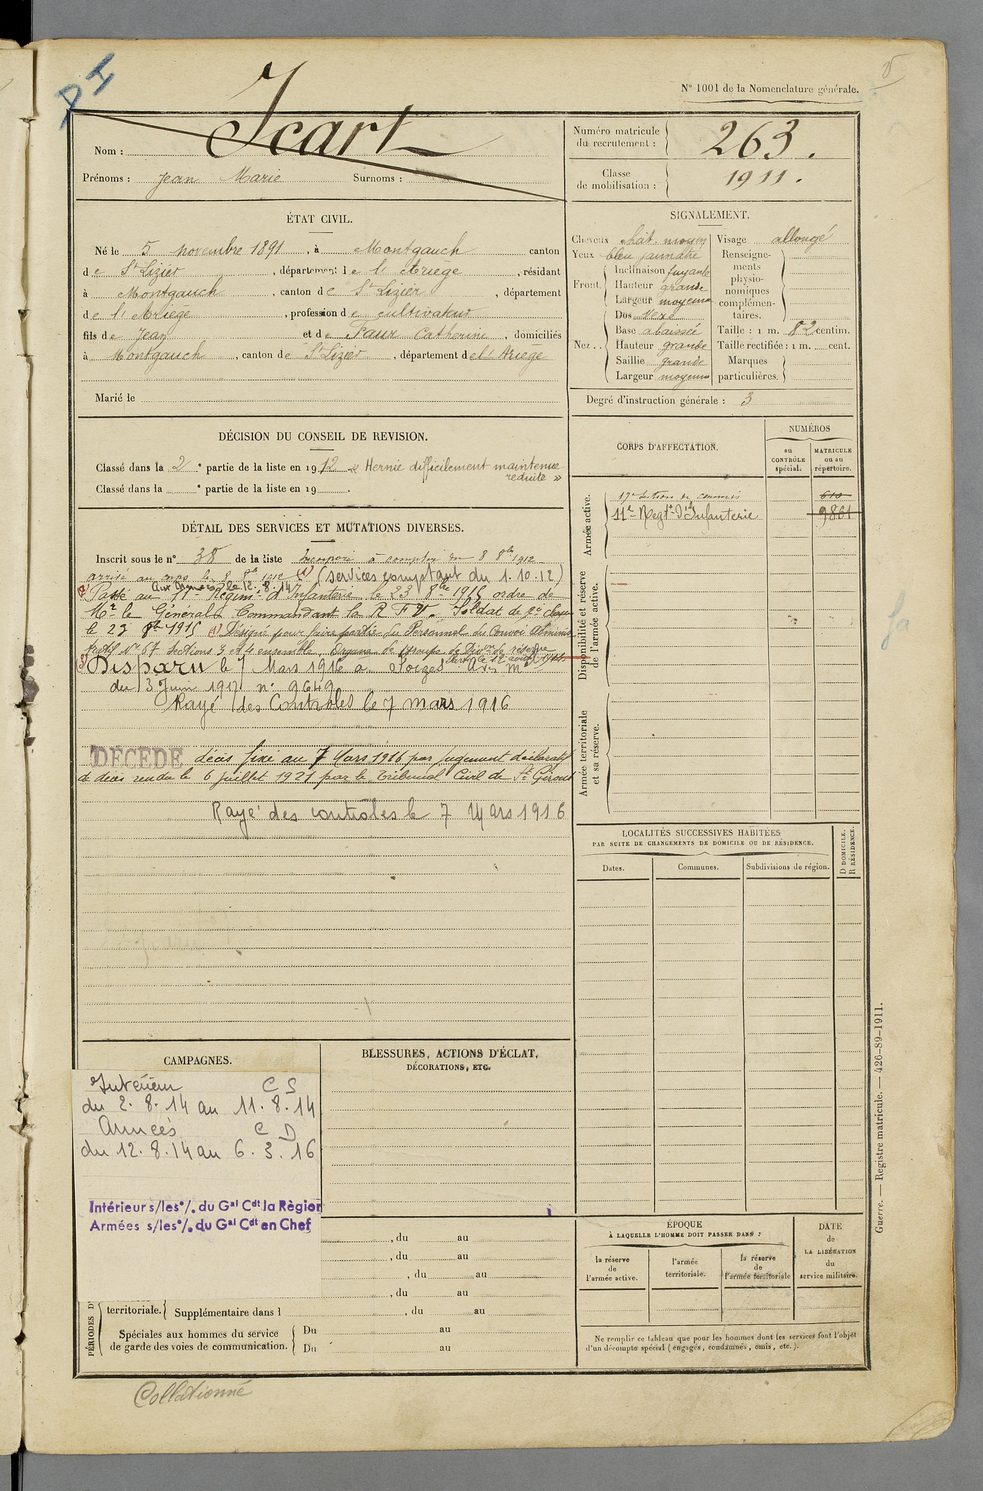 PI
N° 1001 de la Nomenclature générale.
Nom : Icart
Prénoms : Jean Marie Surnoms :
Numéro matricule du recrutement : 263.
Classe de mobilisation : 1911.
ÉTAT CIVIL.
Né le 5 novembre 1891, à Montgauch canton
de St Lizier, département de l'Ariège, résidant
à Montgauch, canton de St Lizier, département
de l'Ariège, profession de cultivateur
fils de Jean et de Faur Catherine, domiciliés
à Montgauch, canton de St Lizier, département de l'Ariège
Marié le
SIGNALEMENT.
Cheveux chât. moyen Visage allongé
Yeux bleu jaunâtre
Front. Inclinaison fuyante
Hauteur grande
Largeur moyenne
Nez.. Dos vexe
Base abaissée
Hauteur grande
Saillie grande
Largeur moyenne
Renseignements physionomiques complémentaires.
Taille : 1 m. 82 centim.
Taille rectifiée : 1 m. cent.
Marques particulières.
Degré d'instruction générale : 3
DÉCISION DU CONSEIL DE REVISION.
Classé dans la 2e partie de la liste en 1912 « Hernie difficilement maintenue
réduite »
Classé dans la e partie de la liste en 19 .
CORPS D'AFFECTATION.
NUMÉROS
au CONTRÔLE spécial.
MATRICULE ou au répertoire.
Armée active.
17e Section de commis 610
11e Regt d'Infanterie 9861
Disponibilité et réserve de l'armée active.
Armée territoriale et sa réserve.
DÉTAIL DES SERVICES ET MUTATIONS DIVERSES.
Inscrit sous le n° 38 de la liste Incorporé à compter du 8 8bre 1912
arrivé au corps le 8 8bre 1912 (1) (services comptant du 1.10.12)
Aux Armées le 12.8.14
(2) Passé au 11e Régimt d'Infanterie le 23 8bre 1915 ordre de
Mr le Général Commandant la R.F.V. Soldat de 2e classe
le 23 8bre 1915 (1) Désigné pour faire partie du Personnel du Convoi administ
ratif N° 67 Sections 3 et 4 ensemble, Organe de Groupe de Divons de réserve
(3) Disparu le 7 Mars 1916 à Avis Mel
du 3 Juin 1917 n° 9649
Rayé des Contrôles le 7 mars 1916
DÉCÉDÉ décès fixé au 7 Mars 1916 par jugement déclaratif
de décès rendu le 6 juillet 1921 par le Tribunal Civil de St Girons
Rayé des contrôles le 7 Mars 1916
LOCALITÉS SUCCESSIVES HABITÉES
PAR SUITE DE CHANGEMENTS DE DOMICILE OU DE RÉSIDENCE.
Dates. Communes. Subdivisions de région.
D DOMICILE. R RÉSIDENCE.
CAMPAGNES.
Intérieur C S
du 2.8.14 au 11.8.14
Armées C D
du 12.8.14 au 6.3.16
Intérieur s/les °/. du Gal Cdt la Région
Armées s/les °/. du Gal Cdt en Chef
BLESSURES, ACTIONS D'ÉCLAT,
DÉCORATIONS, ETC.
, du au
, du au
, du au
, du au
PÉRIODES D
territoriale. Supplémentaire dans l , du au
Spéciales aux hommes du service
de garde des voies de communication.
Du au
Du au
ÉPOQUE
À LAQUELLE L'HOMME DOIT PASSER DANS :
la réserve de l'armée active.
l'armée territoriale.
la réserve de l'armée territoriale
DATE de LA LIBÉRATION du service militaire.
Ne remplir ce tableau que pour les hommes dont les services font l'objet
d'un décompte spécial (engagés, condamnés, omis, etc.).
Guerre. — Registre matricule. — 426-89-1911.
Collationné